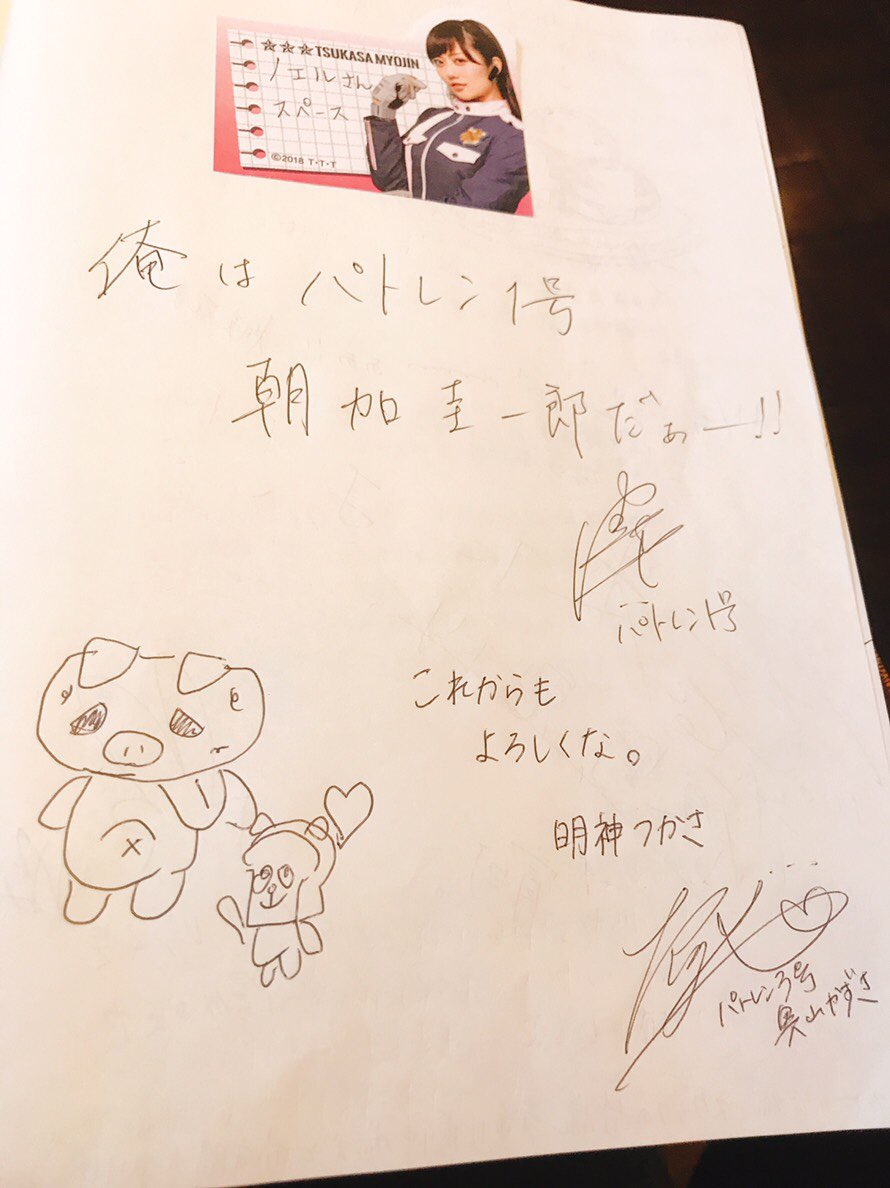 ☆☆☆TSUKASA MYOJIN
ノエルさん
スペース
©2018 T・T・T
俺はパトレン1号
朝加圭一郎だぁー!!
パトレン1号
これからも
よろしくな。
明神つかさ
パトレン3号
奥山かずさ